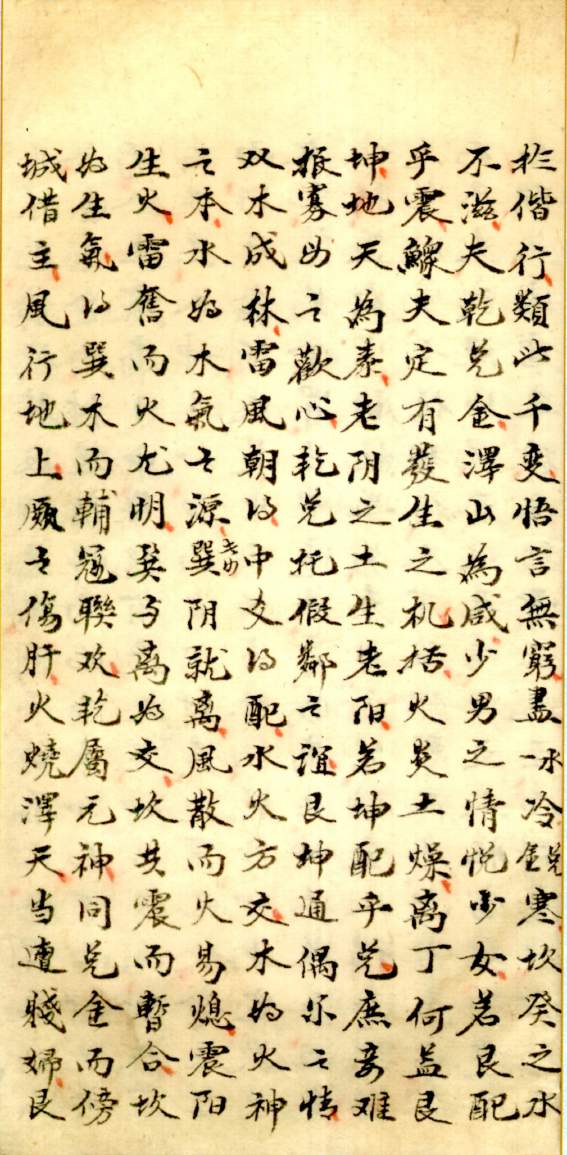 於偕行類此千變悟言無窮盡一水冷金兌寒坎癸之水
不滋夫乾兌金澤山為咸少男之情悅少女若艮配
乎震鰥夫定有發生之机括火炎土燥离丁何益艮
坤地天為泰老阴之土生老阳若坤配乎兌庶妾难
投寡母之歡心乾兌托假鄰之誼艮坤通偶尔之情
双木成林雷風朝得中爻得配水火方交木为火神
之本水为木氣之源巽阴就离風散而火易熄震阳
生火雷奮而火尤明巽与离为交坎共震而暫合坎
为生氣得巽木而輔冦聯欢乾屬元神同兌金而傍
城借主風行地上厥之傷肝火燒澤天当遭賤婦艮